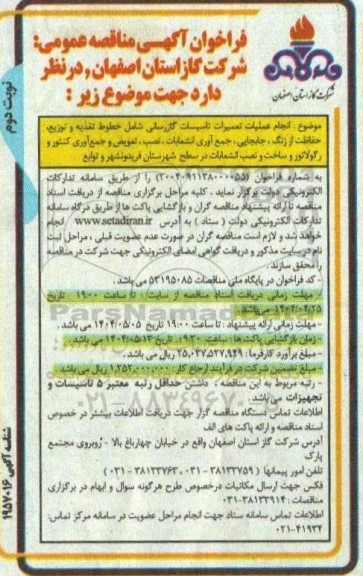 شرکت گاز استان اصفهان
فراخوان آگهی مناقصه عمومی:
شرکت گاز استان اصفهان , در نظر
دارد جهت موضوع زیر :
نوبت دوم
موضوع : انجام عملیات تعمیرات تاسیسات گازرسانی شامل خطوط تغذیه و توزیع،
حفاظت از زنگ ، جابجایی ، جمع آوری انشعابات ، نصب، تعویض و جمع‌آوری کنتور و
رگولاتور و ساخت و نصب انشعابات در سطح شهرستان فریدونشهر و توابع
به شماره فراخوان (۲۰۰۴۰۹۱۱۳۸۰۰۰۰۵۵) را از طریق سامانه تدارکات
الکترونیکی دولت برگزار نماید . کلیه مراحل برگزاری مناقصه از دریافت اسناد
مناقصه تا ارائه پیشنهاد مناقصه گران و بازگشایی پاکت ها از طریق درگاه سامانه
تدارکات الکترونیکی دولت ( ستاد ) به آدرس www.setadiran.ir انجام
خواهد شد و لازم است مناقصه گران در صورت عدم عضویت قبلی ، مراحل ثبت
نام در سایت مذکور و دریافت گواهی امضای الکترونیکی جهت شرکت در مناقصه
را محقق سازند .
- کد فراخوان در پایگاه ملی مناقصات ۵۳۱۹۵۰۸۵ می باشد .
- مهلت زمانی دریافت اسناد مناقصه از سایت: تا ساعت ۱۹:۰۰ تاریخ
۱۴۰۴/۰۴/۲۵ می باشد.
- مهلت زمانی ارائه پیشنهاد : تا ساعت ۱۹:۰۰ تاریخ ۱۴۰۴/۰۵/۰۵ می باشد .
- زمان بازگشایی پاکت ها : ساعت ۰۹:۳۰ تاریخ ۱۴۰۴/۰۵/۱۳ می باشد.
- مبلغ برآورد کارفرما: ۲۵،۰۳۷،۵۲۷،۹۴۹ ریال می باشد.
- مبلغ تضمین شرکت در فرآیند ارجاع کار: ۱،۲۵۲،۰۰۰،۰۰۰ ریال می باشد
- رتبه مربوط به این مناقصه ، داشتن حداقل رتبه معتبر ۵ تاسیسات و
تجهیزات می باشد.
اطلاعات تماس دستگاه مناقصه گزار جهت دریافت اطلاعات بیشتر در خصوص
اسناد مناقصه و ارائه پاکت های الف
آدرس شرکت گاز استان اصفهان واقع در خیابان چهارباغ بالا - روبروی مجتمع
پارک
تلفن امور پیمانها ( ۳۸۱۳۲۷۵۹ - ۰۳۱ ، ۳۸۱۳۲۷۶۳ - ۰۳۱ )
فکس جهت ارسال مکاتبات درخصوص طرح هرگونه سوال و ابهام در برگزاری
مناقصات : ۳۸۱۳۳۹۱۴-۰۳۱
اطلاعات تماس سامانه ستاد جهت انجام مراحل عضویت در سامانه مرکز تماس:
۰۲۱-۴۱۹۳۴
شناسه آگهی ۱۹۵۷۰۱۶
ParsNamadData